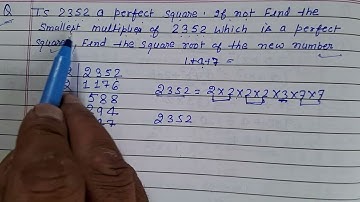 Q Is 2352 a perfect square. If not Find the
Smallest multiple of 2352 which is a perfect
square. Find the square root of the new number
1+2+7 =
2352
1176
2352 = 2×2×2×2×3×7×7
588
294
2352